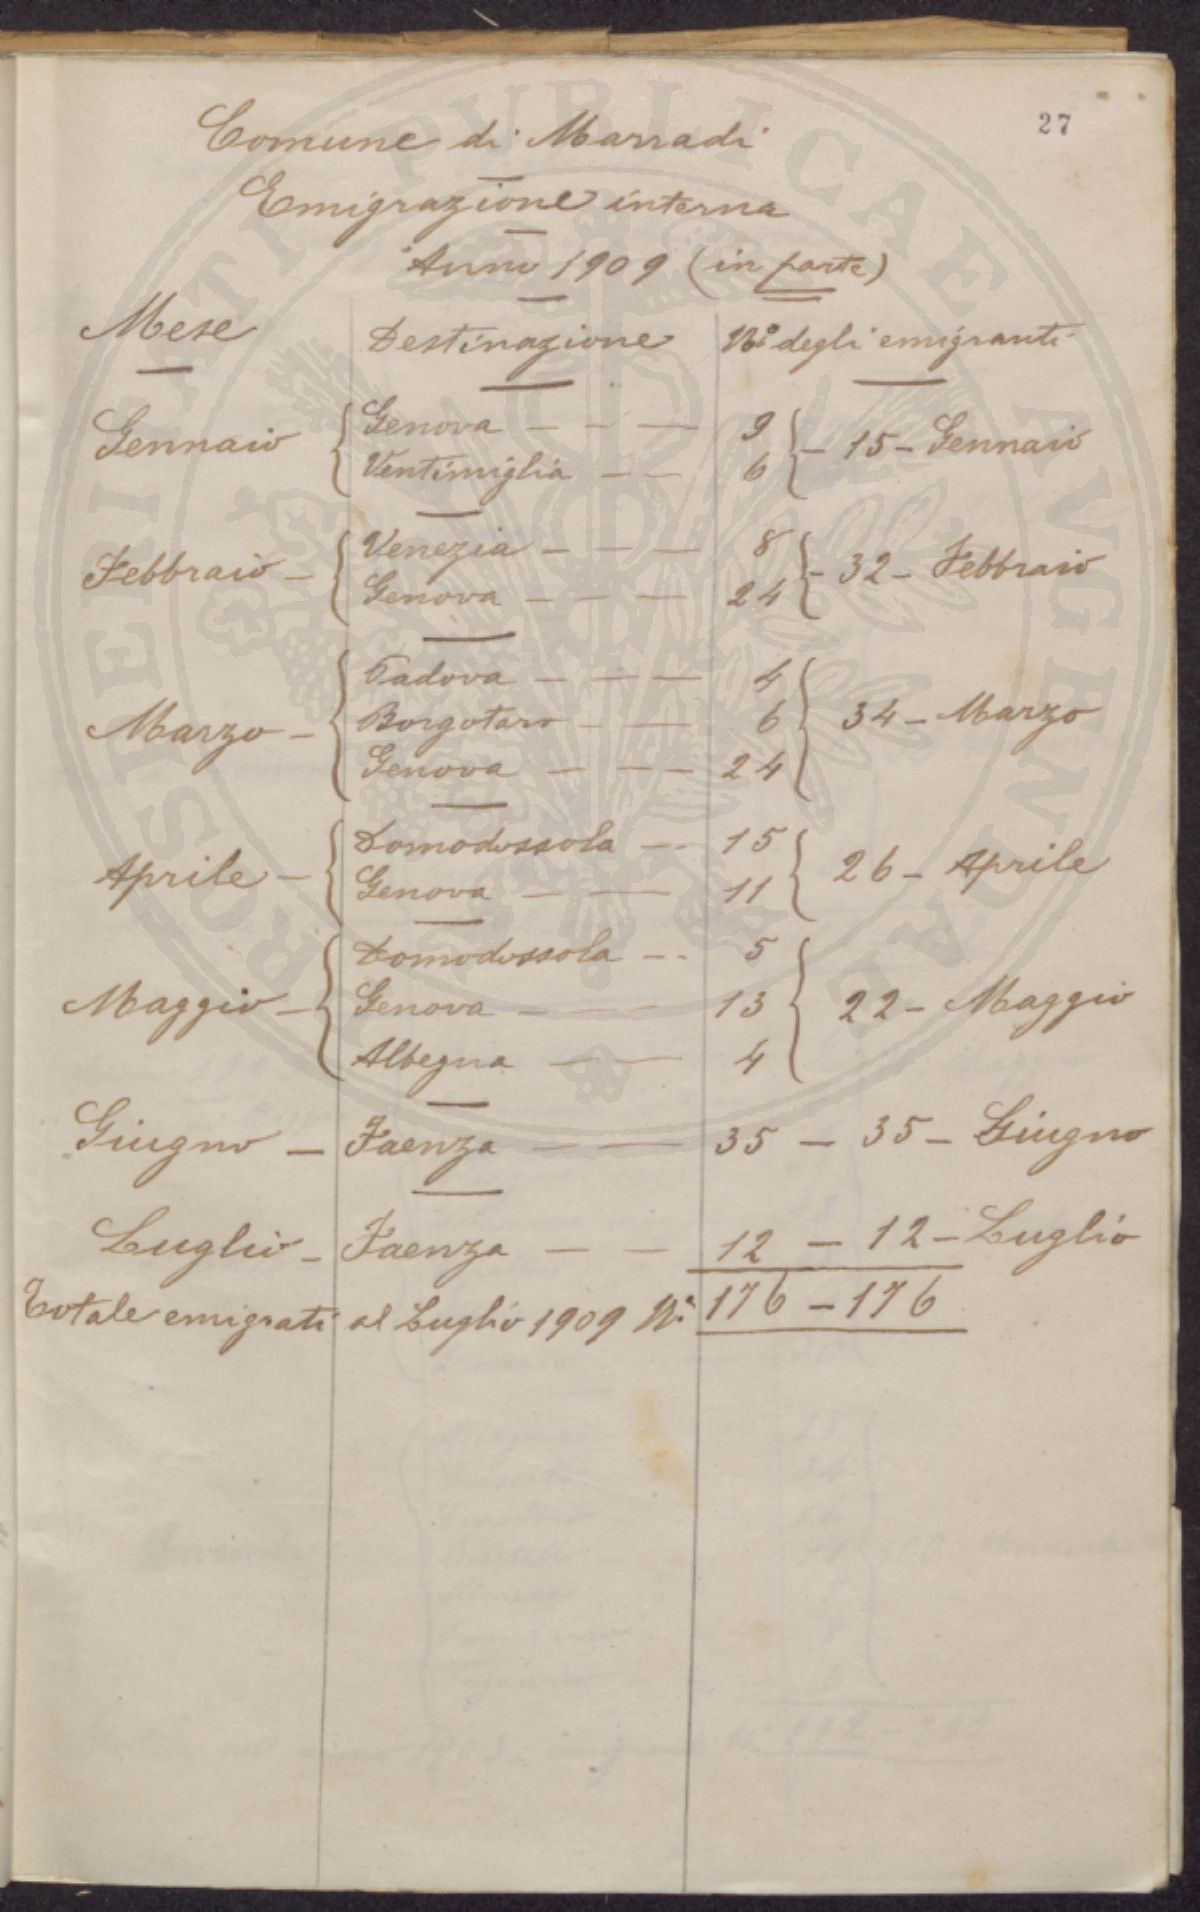 27
Comune di Marradi
Emigrazione interna
Anno 1909 (in parte)
Mese Destinazione N.º degli emigranti
Gennaio { Genova — — — 9 } – 15 – Gennaio
Ventimiglia — — 6
Febbraio – { Venezia — — — 8 } – 32 – Febbraio
Genova — — — 24
Marzo – { Padova — — — 4 } 34 – Marzo
Borgotaro — — 6
Genova — — — 24
Aprile – { Domodossola — - 15 } 26 – Aprile
Genova — — — 11
Maggio – { Domodossola — - 5 } 22 – Maggio
Genova — — — 13
Albegna — — 4
Giugno – Faenza — — 35 – 35 – Giugno
Luglio – Faenza — — 12 – 12 – Luglio
Totale emigrati al Luglio 1909 N.º 176 – 176